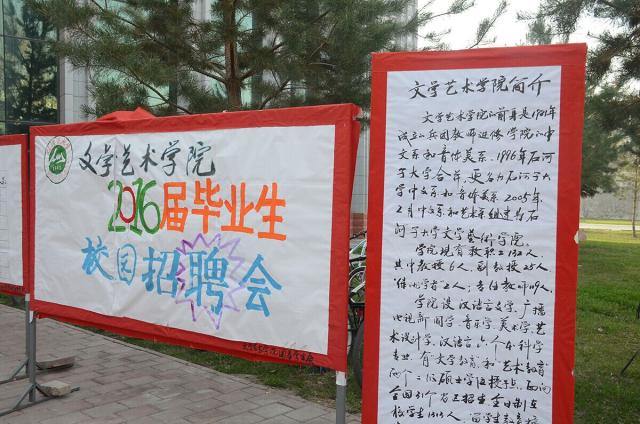 文学艺术学院
2016届毕业生
校园招聘会
文学艺术学院简介
文学艺术学院的前身是1981年
成立的兵团教师进修学院的中
文系和音体美系。1996年石河
子大学合并，更名为石河子大
学中文系和音体美系。2005年
2月中文系和艺术系组建为石
河子大学文学藝術学院。
学院现有教职工132人，
其中教授6人，副教授25人
学院设汉语言文学、广播
电视新闻学、音乐学、美术学、艺
术设计学、汉语言六个本科学
专业，有文学教育和艺术教育
两个二级硕士学位授予点。面向
全国31个省区招生，全日制在
校学生1513人，留学生